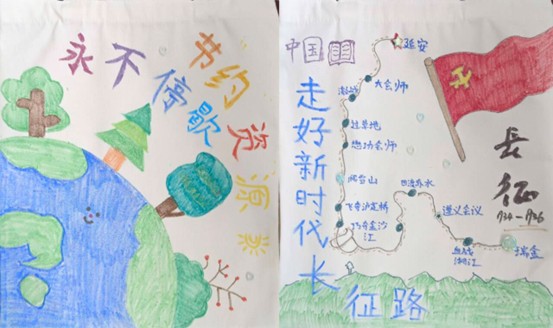 节约资源
永不停歇
中国
走好新时代长
征路
延安
大会师
过草地
懋功会师
爬雪山
飞夺泸定桥
金沙
江
四渡赤水
遵义会议
血战
湘江
瑞金
長征